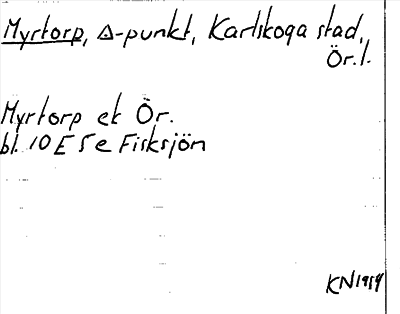 Myrtorp, Δ-punkt, Karlskoga stad,
Ör.l.
Myrtorp et Ör.
bl. 10 E 5 e Fisksjön